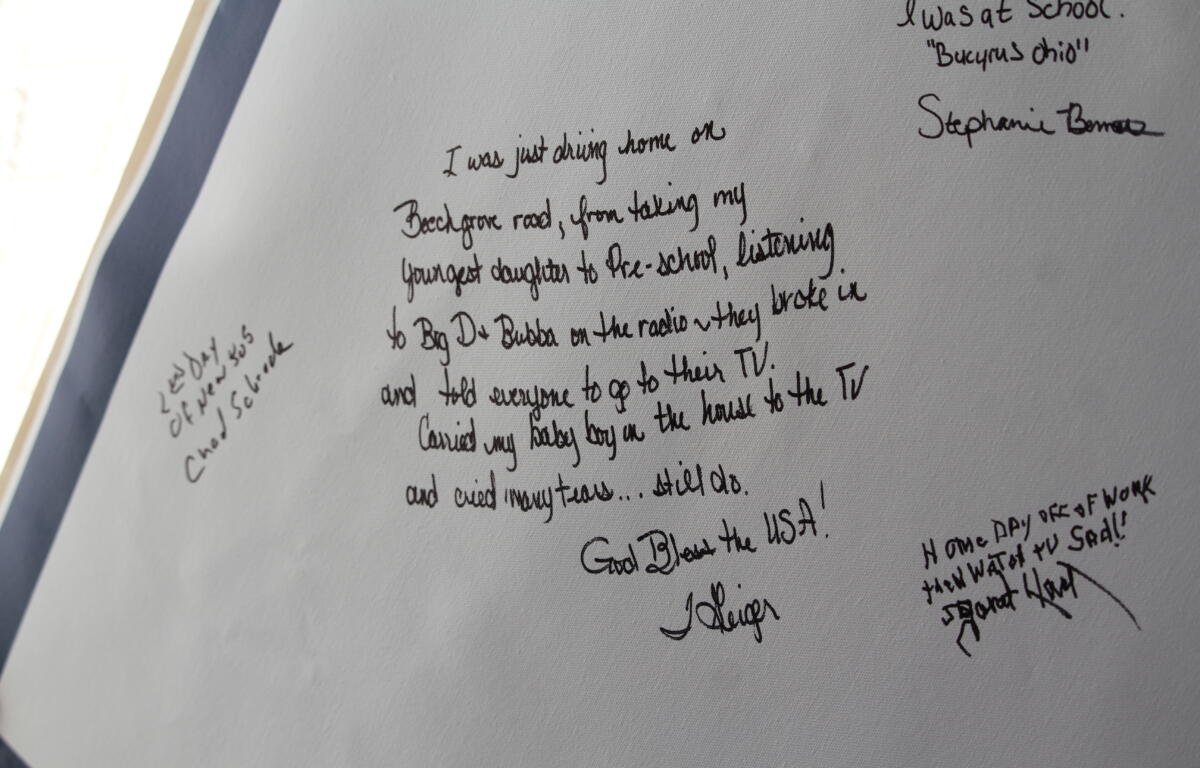 I was at School.
"Bucyrus Ohio"
Stephanie
I was just driving home on
Beechgrove road, from taking my
youngest daughter to Pre-school, listening
to Big D & Bubba on the radio ~ they broke in
and told everyone to go to their TV.
Carried my baby boy in the house to the TV
and cried many tears... still do.
God Bless the USA!
Day
Of New
Chad
Home DAY OFF OF WORK
then WATCH TV SAd!!